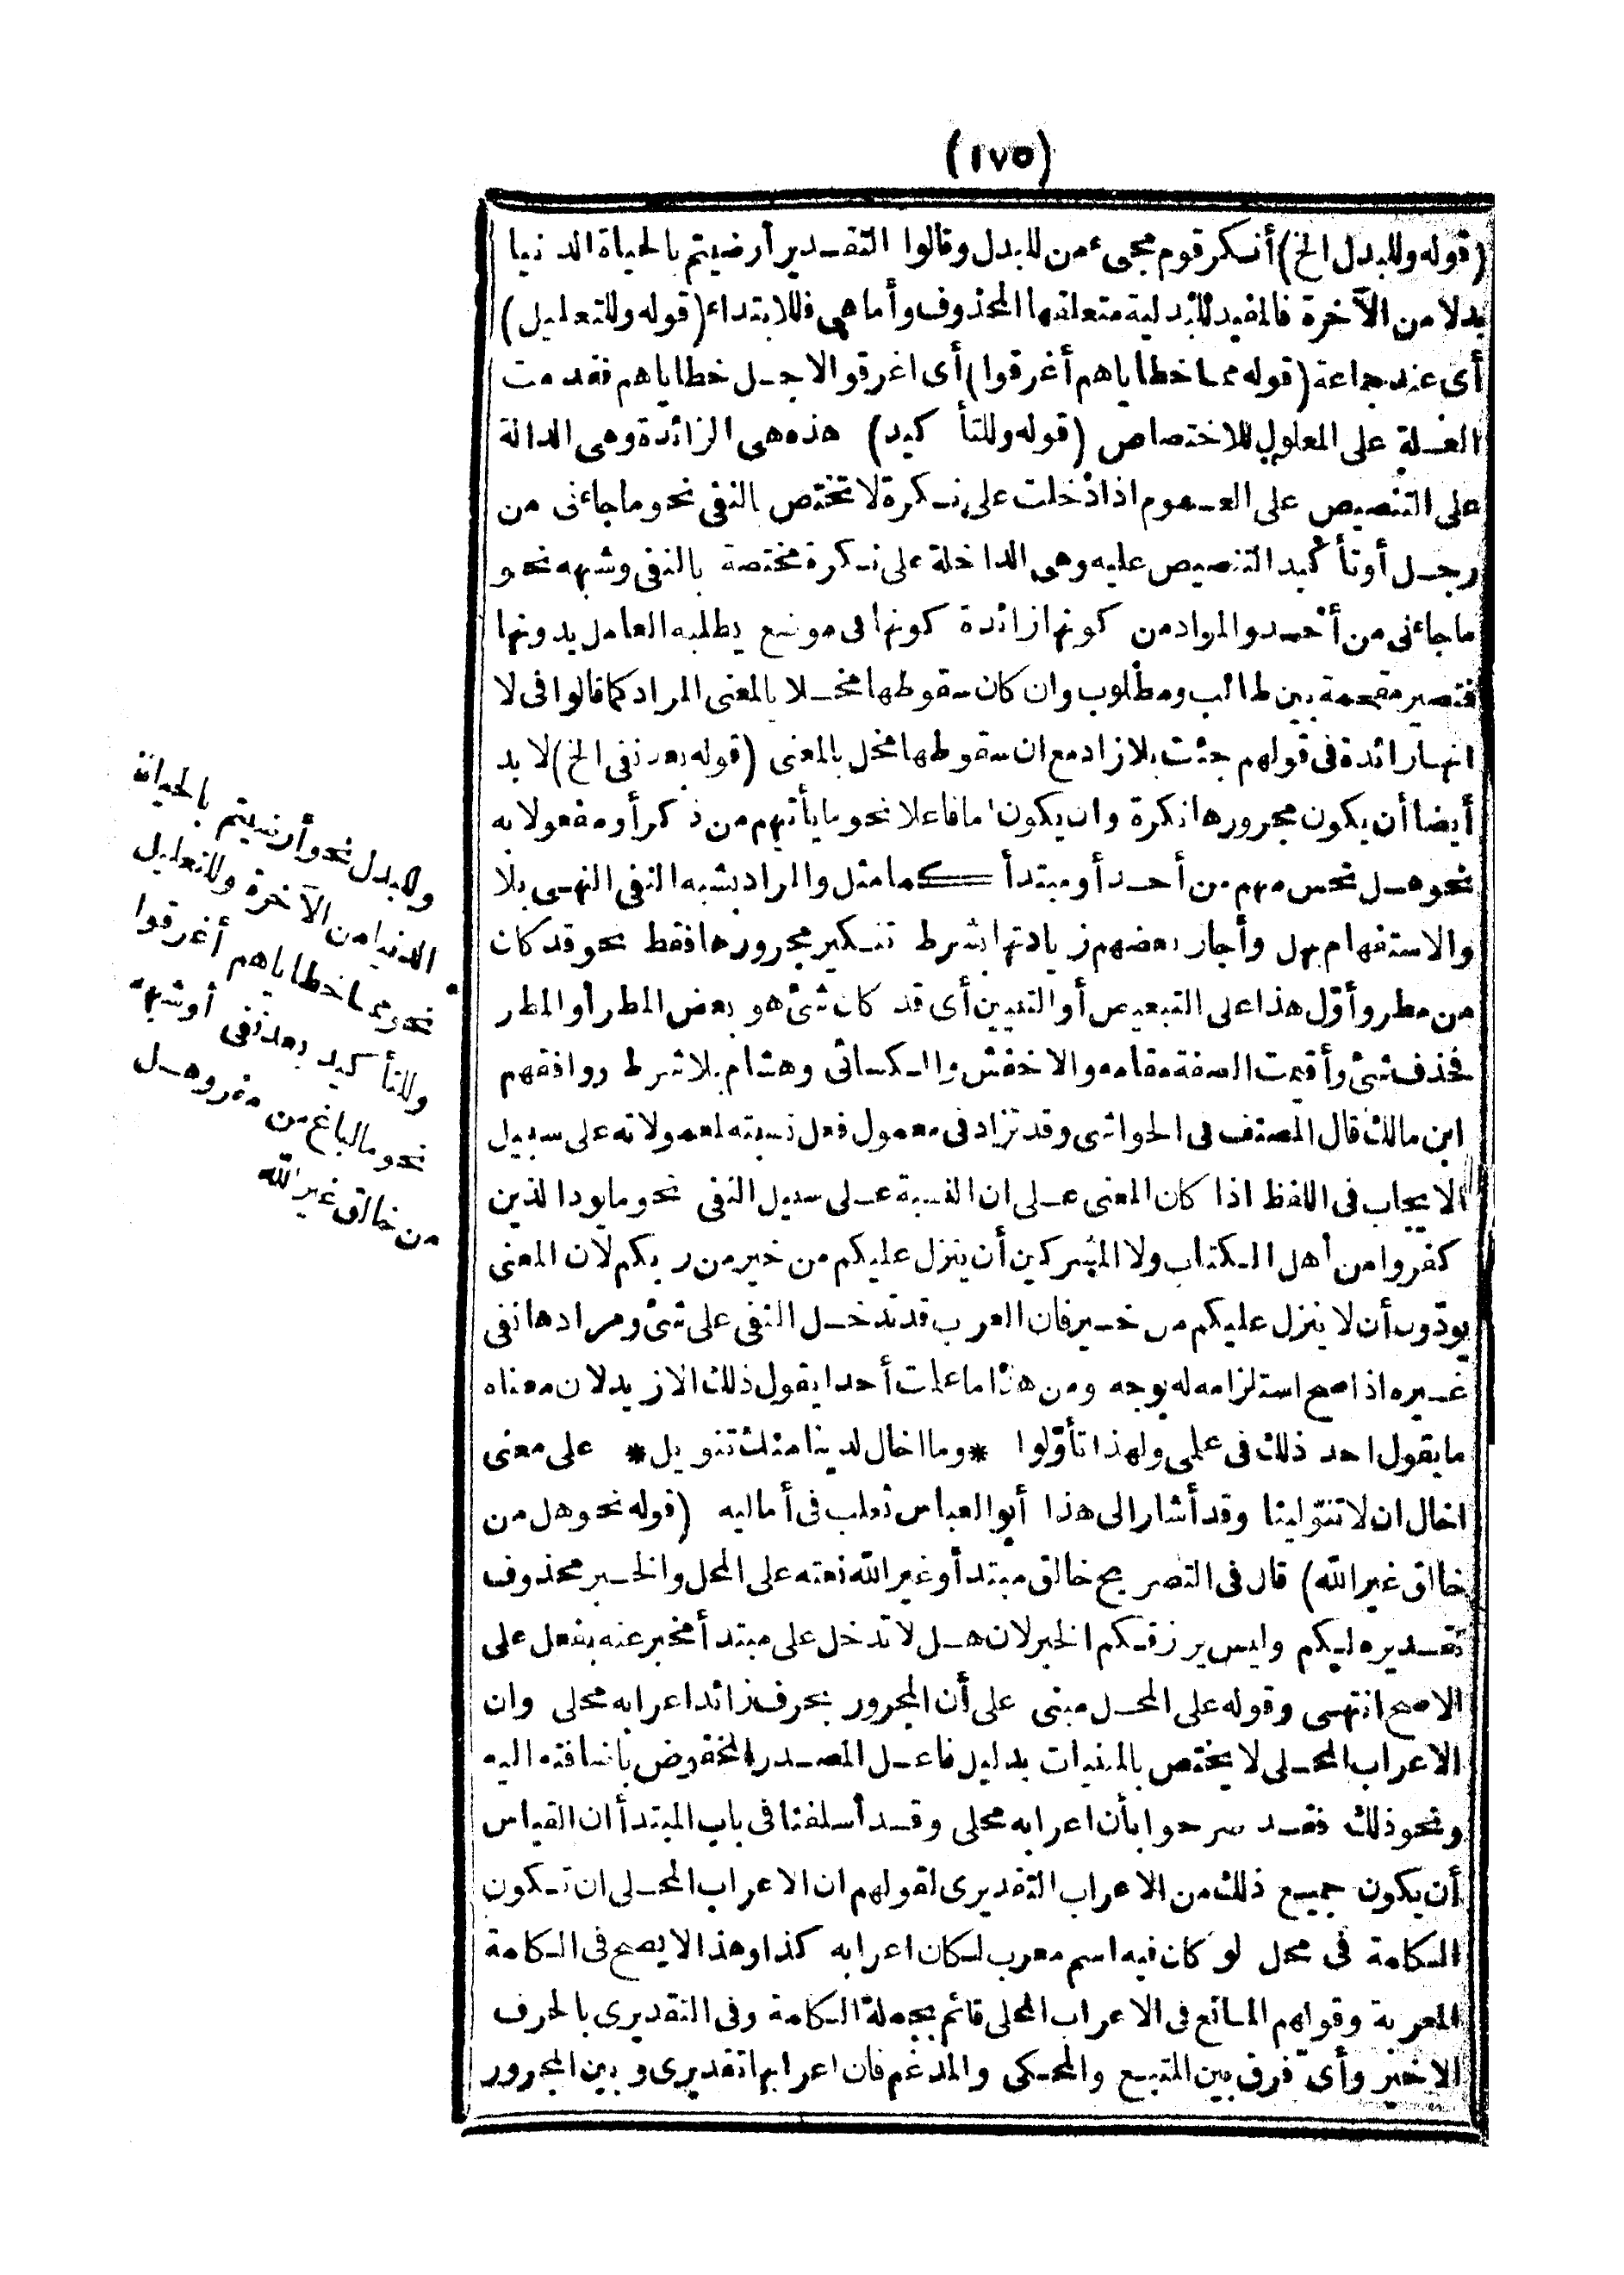 (١٧٥)
(قوله وللبدل الخ) أنكر قوم مجىء من للبدل وقالوا التقدير أرضيتم بالحياة الدنيا
بدلا من الآخرة فالمفيد للبدلية متعلقها المحذوف وأما هى فللابتداء (قوله وللتعليل)
أى عند جماعة (قوله مما خطاياهم أغرقوا) أى اغرقوا لاجل خطاياهم فقدمت
العلة على المعلول للاختصاص (قوله وللتأكيد) هذه هى الزائدة وهى الدالة
على التنصيص على العموم اذا دخلت على نكرة لا تختص بالنفى نحو ما جاءنى من
رجل أو تأكيد التنصيص عليه وهى الداخلة على نكرة مختصة بالنفى وشبهه نحو
ما جاءنى من أحد والمراد من كونها زائدة كونها فى موضع يطلبه العامل بدونها
فتصير مقحمة بين طالب ومطلوب وان كان سقوطها مخلا بالمعنى المراد كما قالوا فى لا
انها زائدة فى قولهم جئت بلا زاد مع ان سقوطها مخل بالمعنى (قوله بعد نفى الخ) لا بد
أيضا أن يكون مجرورها نكرة وان يكون اما فاعلا نحو ما يأتيهم من ذكر أو مفعولا به
نحو هل تحس منهم من أحد أو مبتدأ كما مثل والمراد بشبه النفى النهى بلا
والاستفهام بهل وأجاز بعضهم زيادتها بشرط تنكير مجرورها فقط نحو قد كان
من مطر وأوّل هذا على التبعيض أو التبيين أى قد كان شئ هو بعض المطر أو المطر
فحذف شئ وأقيمت الصفة مقامه والاخفش والكسائى وهشام بلا شرط ووافقهم
ابن مالك قال المصنف فى الحواشى وقد تزاد فى معمول فعل نسبته لمعمولاته على سبيل
الايجاب فى اللفظ اذا كان المعنى على ان النسبة على سبيل النفى نحو ما يود الذين
كفروا من أهل الكتاب ولا المشركين أن ينزل عليكم من خير من ربكم لان المعنى
يودّون أن لا ينزل عليكم من خير فان العرب قد تدخل النفى على شئ ومرادها نفى
غيره اذا صح استلزامه له بوجه ومن هذا ما علمت أحدا يقول ذلك الا زيد لان معناه
ما يقول احد ذلك فى علمى ولهذا تأوّلوا * وما اخال لدينا منك تنويل * على معنى
اخال ان لا تنوّلينا وقد أشار الى هذا أبو العباس ثعلب فى أماليه (قوله نحو هل من
خالق غير الله) قال فى التصريح خالق مبتدأ وغير الله نعته على المحل والخبر محذوف
تقديره لكم وليس يرزقكم الخبر لان هل لا تدخل على مبتدأ مخبر عنه بفعل على
الاصح انتهى وقوله على المحل مبنى على أن المجرور بحرف زائد اعرابه محلى وان
الاعراب المحلى لا يختص بالمبنيات بدليل فاعل المصدر المخفوض باضافته اليه
ونحو ذلك فقد صرحوا بأن اعرابه محلى وقد أسلفنا فى باب المبتدأ ان القياس
أن يكون جميع ذلك من الاعراب التقديرى لقولهم ان الاعراب المحلى ان تكون
الكلمة فى محل لو كان فيه اسم معرب لكان اعرابه كذا وهذا لا يصح فى الكلمة
المعربة وقولهم المانع فى الاعراب المحلى قائم بجملة الكلمة وفى التقديرى بالحرف
الاخير وأى فرق بين المتبع والمحكى والمدغم فان اعرابها تقديرى وبين المجرور
وللبدل نحو أرضيتم بالحياة
الدنيا من الآخرة وللتعليل
نحو مما خطاياهم أغرقوا
وللتأكيد بعد نفى أو شبهه
نحو ما لباغ من مفر وهل
من خالق غير الله